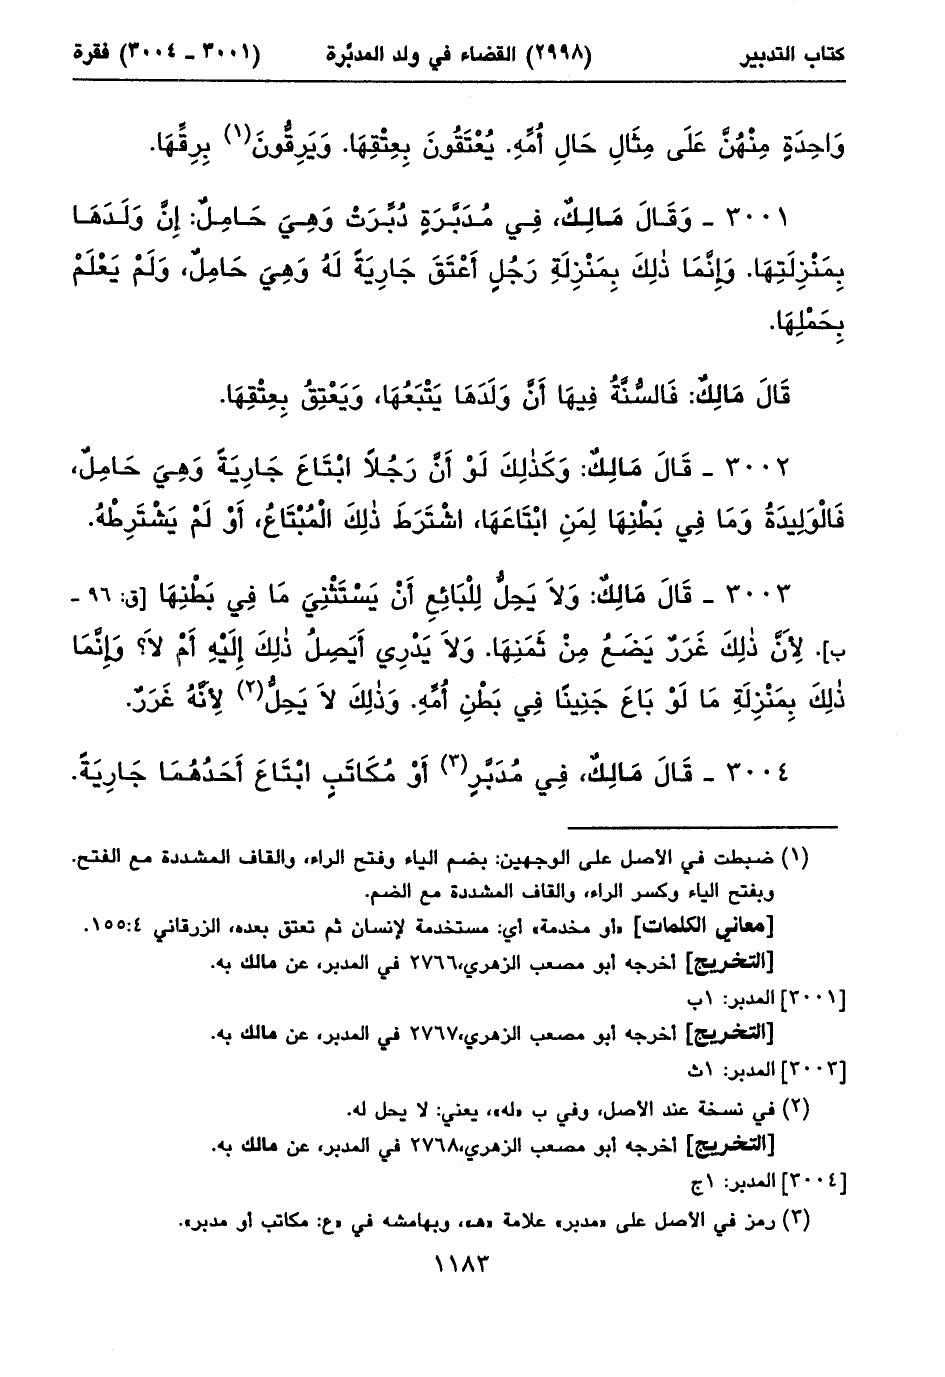 كتاب التدبير (٢٩٩٨) القضاء في ولد المدبَّرة (٣٠٠١ ـ ٣٠٠٤) فقرة
وَاحِدَةٍ مِنْهُنَّ عَلَى مِثَالِ حَالِ أُمِّهِ. يُعْتَقُونَ بِعِتْقِهَا. وَيَرِقُّونَ(١) بِرِقِّهَا.
٣٠٠١ ـ وَقَالَ مَالِكٌ، فِي مُدَبَّرَةٍ دُبِّرَتْ وَهِيَ حَامِلٌ: إِنَّ وَلَدَهَا
بِمَنْزِلَتِهَا. وَإِنَّمَا ذٰلِكَ بِمَنْزِلَةِ رَجُلٍ أَعْتَقَ جَارِيَةً لَهُ وَهِيَ حَامِلٌ، وَلَمْ يَعْلَمْ
بِحَمْلِهَا.
قَالَ مَالِكٌ: فَالسُّنَّةُ فِيهَا أَنَّ وَلَدَهَا يَتْبَعُهَا، وَيَعْتِقُ بِعِتْقِهَا.
٣٠٠٢ ـ قَالَ مَالِكٌ: وَكَذٰلِكَ لَوْ أَنَّ رَجُلاً ابْتَاعَ جَارِيَةً وَهِيَ حَامِلٌ،
فَالْوَلِيدَةُ وَمَا فِي بَطْنِهَا لِمَنِ ابْتَاعَهَا، اشْتَرَطَ ذٰلِكَ الْمُبْتَاعُ، أَوْ لَمْ يَشْتَرِطْهُ.
٣٠٠٣ ـ قَالَ مَالِكٌ: وَلاَ يَحِلُّ لِلْبَائِعِ أَنْ يَسْتَثْنِيَ مَا فِي بَطْنِهَا [ق: ٩٦ ـ
ب]. لِأَنَّ ذٰلِكَ غَرَرٌ يَضَعُ مِنْ ثَمَنِهَا. وَلاَ يَدْرِي أَيَصِلُ ذٰلِكَ إِلَيْهِ أَمْ لاَ؟ وَإِنَّمَا
ذٰلِكَ بِمَنْزِلَةِ مَا لَوْ بَاعَ جَنِينًا فِي بَطْنِ أُمِّهِ. وَذٰلِكَ لاَ يَحِلُّ(٢) لِأَنَّهُ غَرَرٌ.
٣٠٠٤ ـ قَالَ مَالِكٌ، فِي مُدَبَّرٍ(٣) أَوْ مُكَاتَبٍ ابْتَاعَ أَحَدُهُمَا جَارِيَةً.
(١) ضبطت في الأصل على الوجهين: بضم الياء وفتح الراء، والقاف المشددة مع الفتح.
وبفتح الياء وكسر الراء، والقاف المشددة مع الضم.
[معاني الكلمات] «أو مخدمة» أي: مستخدمة لإنسان ثم تعتق بعده، الزرقاني ١٥٥:٤.
[التخريج] أخرجه أبو مصعب الزهري،٢٧٦٦ في المدبر، عن مالك به.
[٣٠٠١] المدبر: ١ب
[التخريج] أخرجه أبو مصعب الزهري،٢٧٦٧ في المدبر، عن مالك به.
[٣٠٠٣] المدبر: ١ث
(٢) في نسخة عند الأصل، وفي ب «له»، يعني: لا يحل له.
[التخريج] أخرجه أبو مصعب الزهري،٢٧٦٨ في المدبر، عن مالك به.
[٣٠٠٤] المدبر: ١ج
(٣) رمز في الأصل على «مدبر» علامة «هـ»، وبهامشه في «ع: مكاتب أو مدبر».
١١٨٣